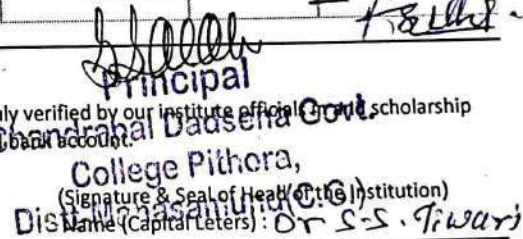 Principal
ly verified by our institute officials and scholarship
Chandrapal Dadsena Govt.
bank account.
College Pithora,
(Signature & Seal of Head of the Institution)
Distt-Mahasamund (C.G.)
Name (Capital Leters) : Dr S-S. Tiwari